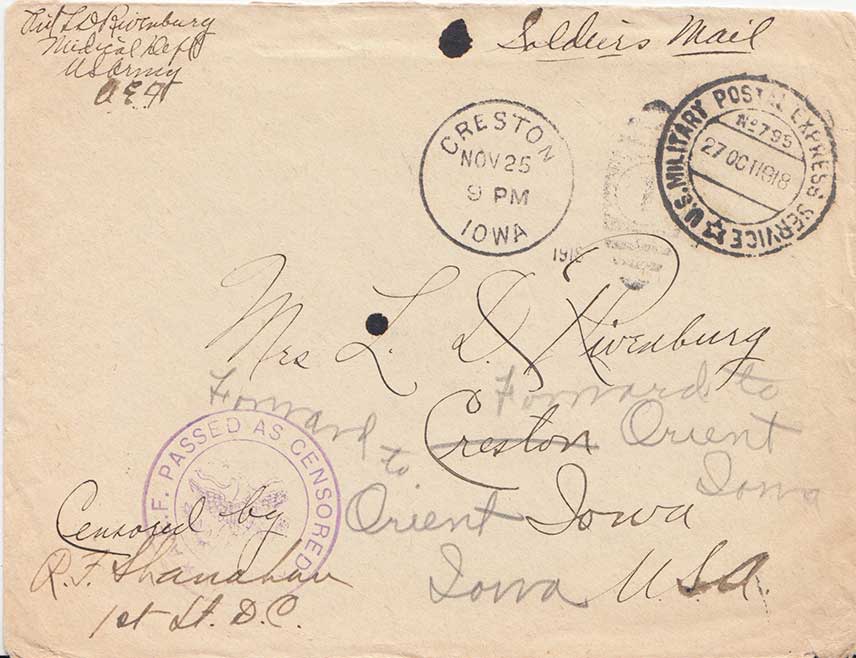 L D Rivenburg
Medical Dept
US Army
A.E.F.
Soldiers Mail
CRESTON
NOV 25
9 PM
IOWA
1918
U.S. MILITARY POSTAL EXPRESS SERVICE
No 795
27 OCT 1918
Mrs L. D. Rivenburg
Forward to
Creston Orient
Iowa
Iowa
U.S.A.
Forward
to
Orient
Iowa
F. PASSED AS CENSORED
Censored by
R.F. Shanahan
1st Lt. D.C.